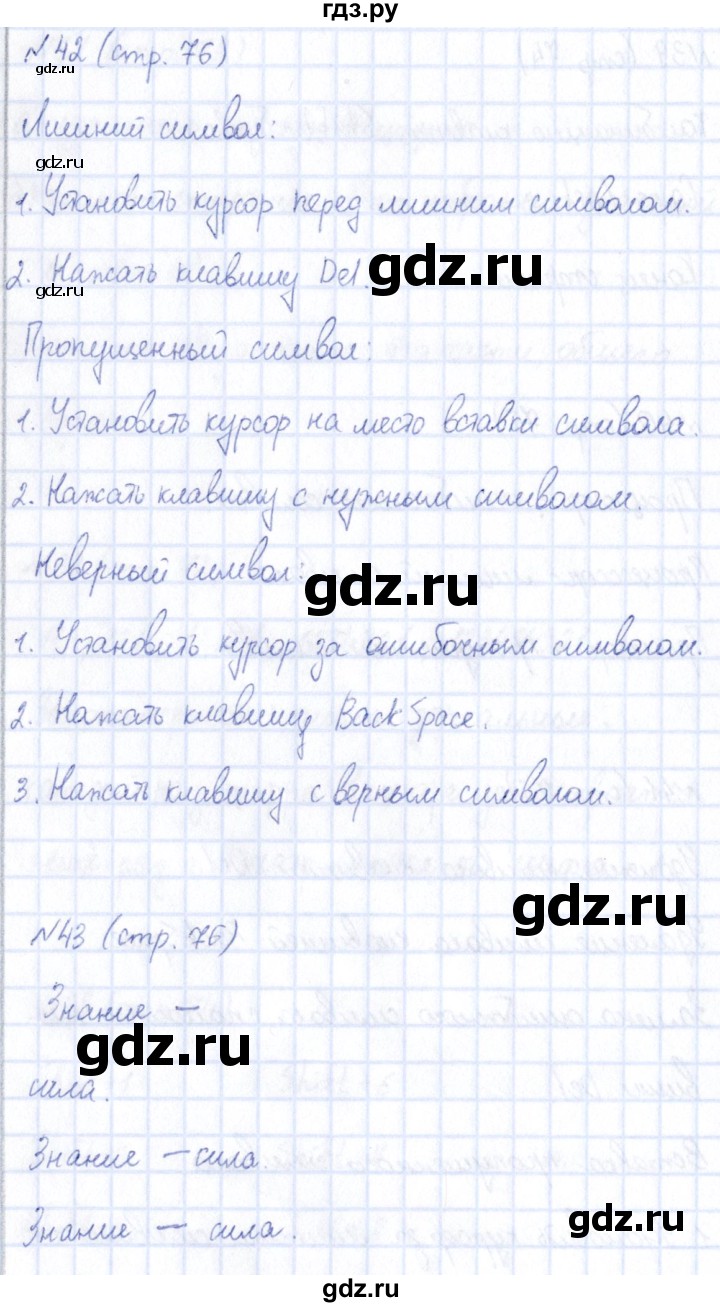 гдз.ру
№42 (стр. 76)
gdz.ru
Лишний символ:
gdz.ru
1. Установить курсор перед лишним символом.
2. Нажать клавишу Del.
gdz.ru
gdz.ru
Пропущенный символ:
1. Установить курсор на место вставки символа.
2. Нажать клавишу с нужным символом.
Неверный символ:
gdz.ru
1. Установить курсор за ошибочным символом.
2. Нажать клавишу BackSpace.
3. Нажать клавишу с верным символом.
gdz.ru
№43 (стр. 76)
Знание —
gdz.ru
сила.
Знание — сила.
gdz.ru
Знание — сила.
gdz.ru